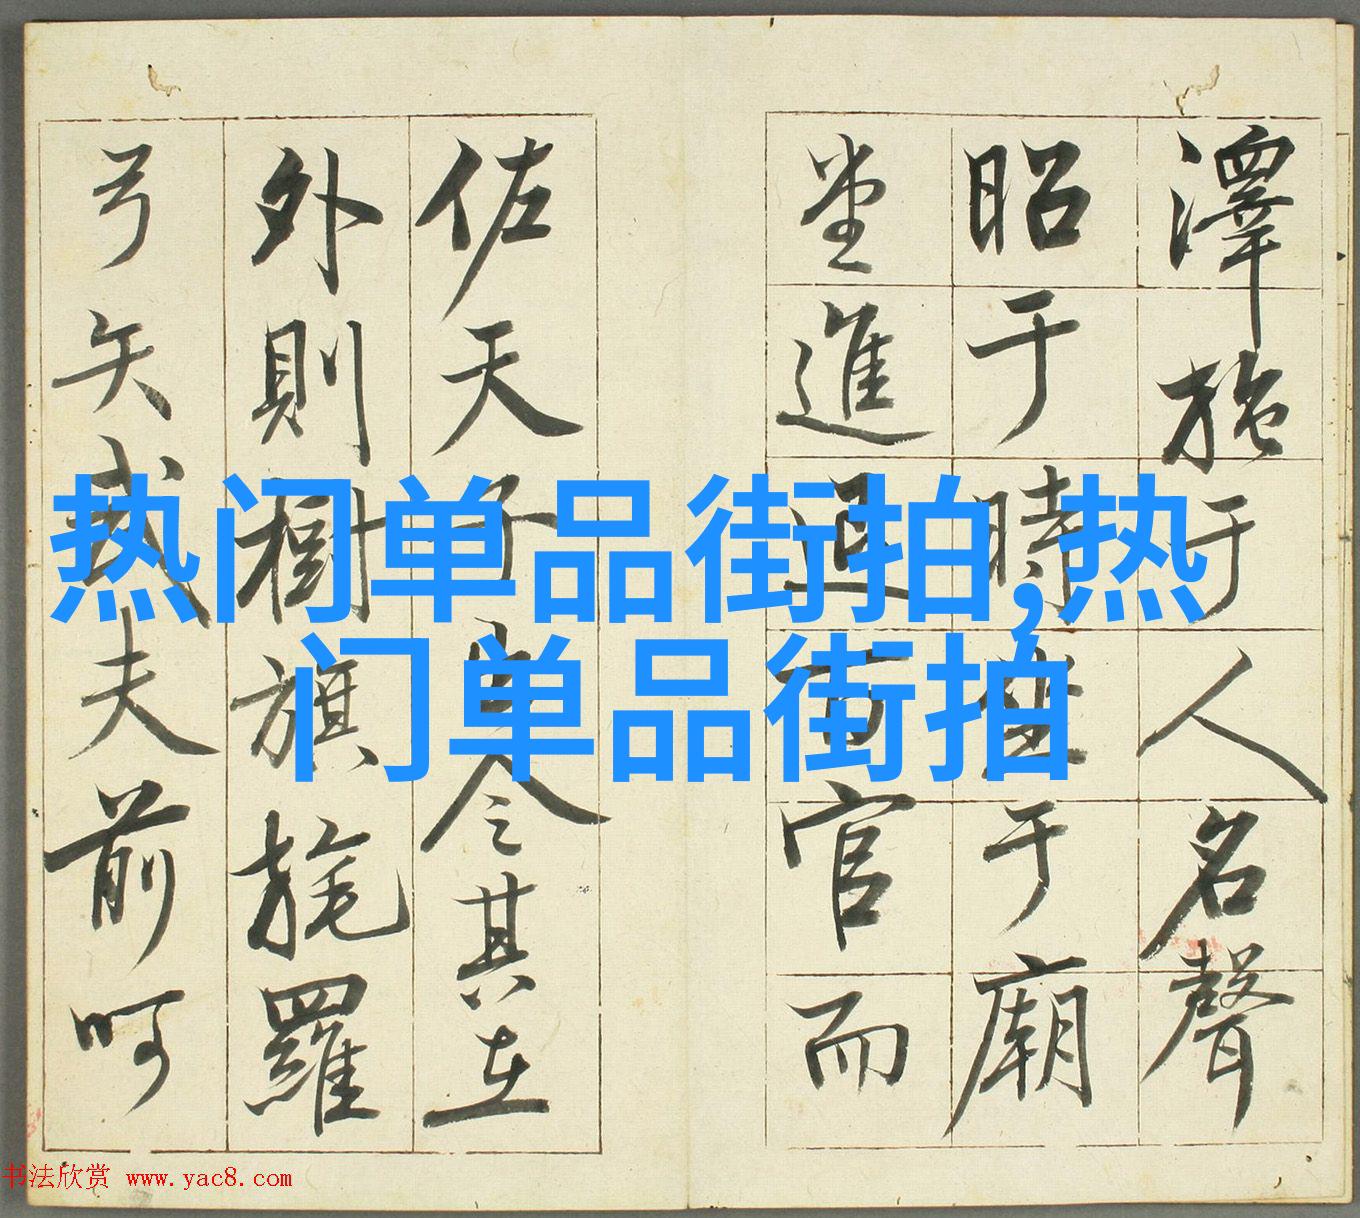 澤施于人名聲
昭于時坐于廟
堂進退百官而
佐天子出令其在
外則樹旗旄羅
弓矢武夫前呵
热门单品街拍,热
门单品街拍
书法欣赏 www.yac8.com